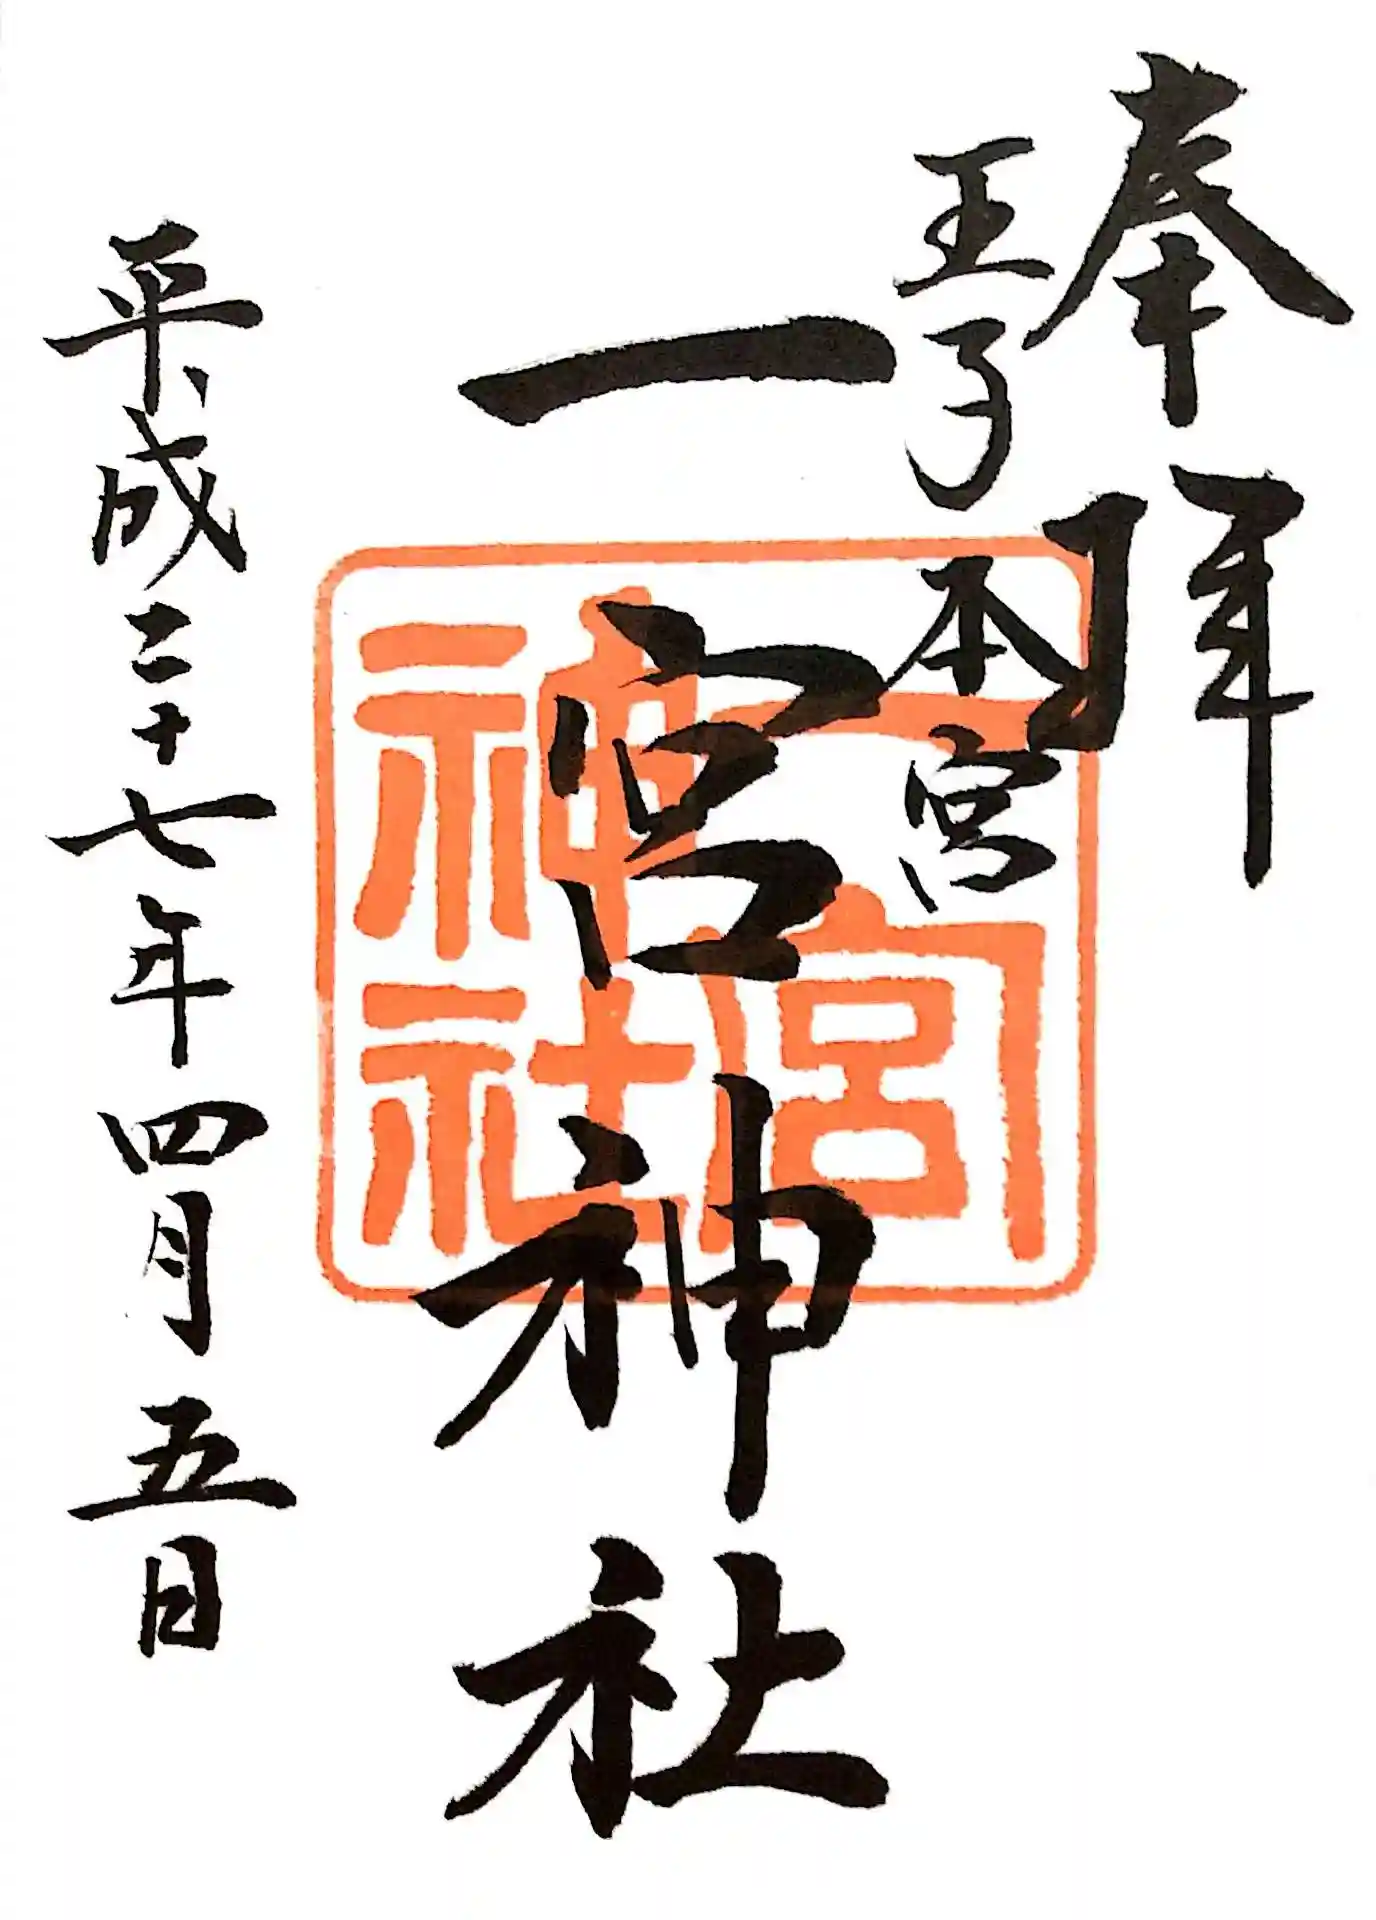 奉拝
王子本宮
一宮神社
一宮神社
平成二十七年四月五日